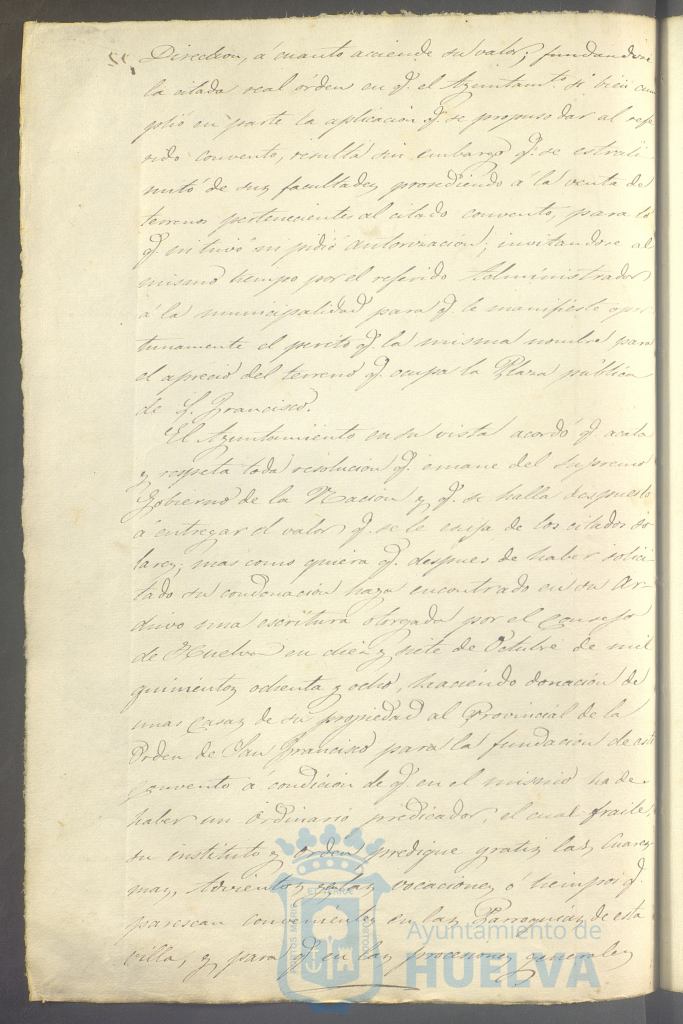 Direccion, á cuanto aciende su valor; fundandose
la citada real órden en q.e el Ayuntam.to si bien cum
plió en parte la aplicacion q.e se propuso dar al refe
rido convento, resulta sin embargo q.e se estrali
mitó de sus facultades procediendo á la venta de
terrenos pertenecientes al citado convento, para lo
q.e ni tuvo ni pidió autorizacion; invitandose al
mismo tiempo por el referido Administrador
á la municipalidad para q.e le manifieste opor
tunamente el perito q.e la misma nombre para
el aprecio del terreno q.e ocupa la Plaza publica
de S. Francisco.
El Ayuntamiento en su vista acordó q.e acata
y respeta toda resolucion q.e emane del supremo
Gobierno de la Nacion y q.e se halla despuesto
á entregar el valor q.e se le exija de los citados so
lares; mas como quiera q.e despues de haber solici
tado su condonacion haya encontrado en su Ar-
chivo una escritura otorgada por el Consejo
de Huelva en diez y siete de Octubre de mil
quinientos ochenta y ocho, haciendo donacion de
unas casas de su propiedad al Provincial de la
Orden de San Francisco para la fundacion de este
convento á condicion de q.e en el mismo ha de
haber un ordinario predicador, el cual fraile,
su instituto y orden predique gratis las Cuares
mas, Advientos y otras vocaciones ó tiempos q.e
parescan convenientes en las Parroquias de esta
villa, y para q.e en las procesiones generales
Ayuntamiento de
HUELVA